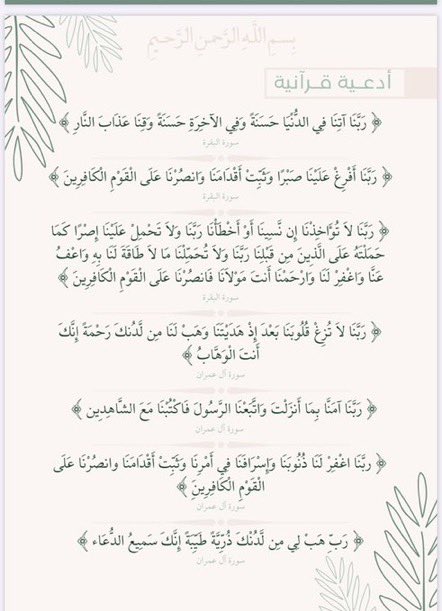 بِسْمِ اللَّهِ الرَّحْمَنِ الرَّحِيمِ
أدعـية قـرآنية
﴿ رَبَّنَا آتِنَا فِي الدُّنْيَا حَسَنَةً وَفِي الآخِرَةِ حَسَنَةً وَقِنَا عَذَابَ النَّارِ ﴾
سورة البقرة
﴿ رَبَّنَا أَفْرِغْ عَلَيْنَا صَبْرًا وَثَبِّتْ أَقْدَامَنَا وَانصُرْنَا عَلَى الْقَوْمِ الْكَافِرِينَ ﴾
سورة البقرة
﴿ رَبَّنَا لاَ تُؤَاخِذْنَا إِن نَّسِينَا أَوْ أَخْطَأْنَا رَبَّنَا وَلاَ تَحْمِلْ عَلَيْنَا إِصْرًا كَمَا
حَمَلْتَهُ عَلَى الَّذِينَ مِن قَبْلِنَا رَبَّنَا وَلاَ تُحَمِّلْنَا مَا لاَ طَاقَةَ لَنَا بِهِ وَاعْفُ
عَنَّا وَاغْفِرْ لَنَا وَارْحَمْنَا أَنتَ مَوْلاَنَا فَانصُرْنَا عَلَى الْقَوْمِ الْكَافِرِينَ ﴾
سورة البقرة
﴿ رَبَّنَا لاَ تُزِغْ قُلُوبَنَا بَعْدَ إِذْ هَدَيْتَنَا وَهَبْ لَنَا مِن لَّدُنكَ رَحْمَةً إِنَّكَ
أَنتَ الْوَهَّابُ ﴾
سورة آل عمران
﴿ رَبَّنَا آمَنَّا بِمَا أَنزَلْتَ وَاتَّبَعْنَا الرَّسُولَ فَاكْتُبْنَا مَعَ الشَّاهِدِين ﴾
سورة آل عمران
﴿ ربَّنَا اغْفِرْ لَنَا ذُنُوبَنَا وَإِسْرَافَنَا فِي أَمْرِنَا وَثَبِّتْ أَقْدَامَنَا وانصُرْنَا عَلَى
الْقَوْمِ الْكَافِرِينَ ﴾
سورة آل عمران
﴿ رَبِّ هَبْ لِي مِن لَّدُنْكَ ذُرِّيَّةً طَيِّبَةً إِنَّكَ سَمِيعُ الدُّعَاء ﴾
سورة آل عمران